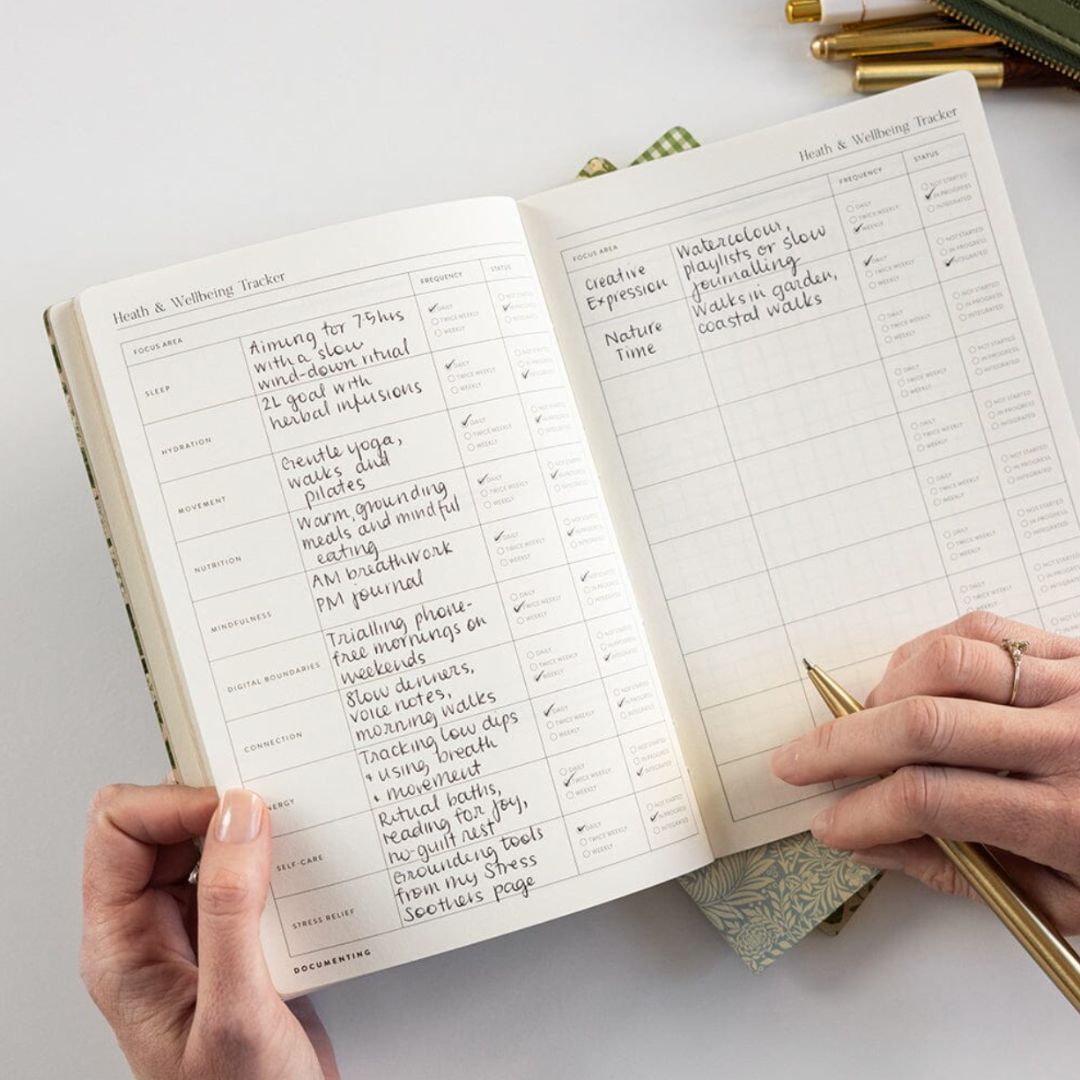 Heath & Wellbeing Tracker
FOCUS AREA
FREQUENCY
STATUS
SLEEP
Aiming for 7.5hrs
with a slow
wind-down ritual
DAILY
TWICE WEEKLY
WEEKLY
NOT STARTED
IN PROGRESS
INTEGRATED
HYDRATION
2L goal with
herbal infusions
DAILY
TWICE WEEKLY
WEEKLY
NOT STARTED
IN PROGRESS
INTEGRATED
MOVEMENT
Gentle yoga,
walks and
pilates
DAILY
TWICE WEEKLY
WEEKLY
NOT STARTED
IN PROGRESS
INTEGRATED
NUTRITION
Warm, grounding
meals and mindful
eating
DAILY
TWICE WEEKLY
WEEKLY
NOT STARTED
IN PROGRESS
INTEGRATED
MINDFULNESS
AM breathwork
PM journal
DAILY
TWICE WEEKLY
WEEKLY
NOT STARTED
IN PROGRESS
INTEGRATED
DIGITAL BOUNDARIES
Trialling phone-
free mornings on
weekends
DAILY
TWICE WEEKLY
WEEKLY
NOT STARTED
IN PROGRESS
INTEGRATED
CONNECTION
Slow dinners,
voice notes,
morning walks
DAILY
TWICE WEEKLY
WEEKLY
NOT STARTED
IN PROGRESS
INTEGRATED
NERGY
Tracking low dips
+ using breath
+ movement
DAILY
TWICE WEEKLY
WEEKLY
NOT STARTED
IN PROGRESS
INTEGRATED
SELF-CARE
Ritual baths,
reading for joy,
no-guilt rest
DAILY
TWICE WEEKLY
WEEKLY
NOT STARTED
IN PROGRESS
INTEGRATED
STRESS RELIEF
Grounding tools
from my Stress
Soothers page
DAILY
TWICE WEEKLY
WEEKLY
NOT STARTED
IN PROGRESS
INTEGRATED
DOCUMENTING
Heath & Wellbeing Tracker
FOCUS AREA
FREQUENCY
STATUS
Creative
Expression
Watercolour,
playlists or slow
journalling
DAILY
TWICE WEEKLY
WEEKLY
NOT STARTED
IN PROGRESS
INTEGRATED
Nature
Time
Walks in garden,
coastal walks
DAILY
TWICE WEEKLY
WEEKLY
NOT STARTED
IN PROGRESS
INTEGRATED
DAILY
TWICE WEEKLY
WEEKLY
NOT STARTED
IN PROGRESS
INTEGRATED
DAILY
TWICE WEEKLY
WEEKLY
NOT STARTED
IN PROGRESS
INTEGRATED
DAILY
TWICE WEEKLY
WEEKLY
NOT STARTED
IN PROGRESS
INTEGRATED
DAILY
TWICE WEEKLY
WEEKLY
NOT STARTED
IN PROGRESS
INTEGRATED
DAILY
TWICE WEEKLY
WEEKLY
NOT STARTED
IN PROGRESS
INTEGRATED
DAILY
TWICE WEEKLY
WEEKLY
NOT STARTED
IN PROGRESS
INTEGRATED